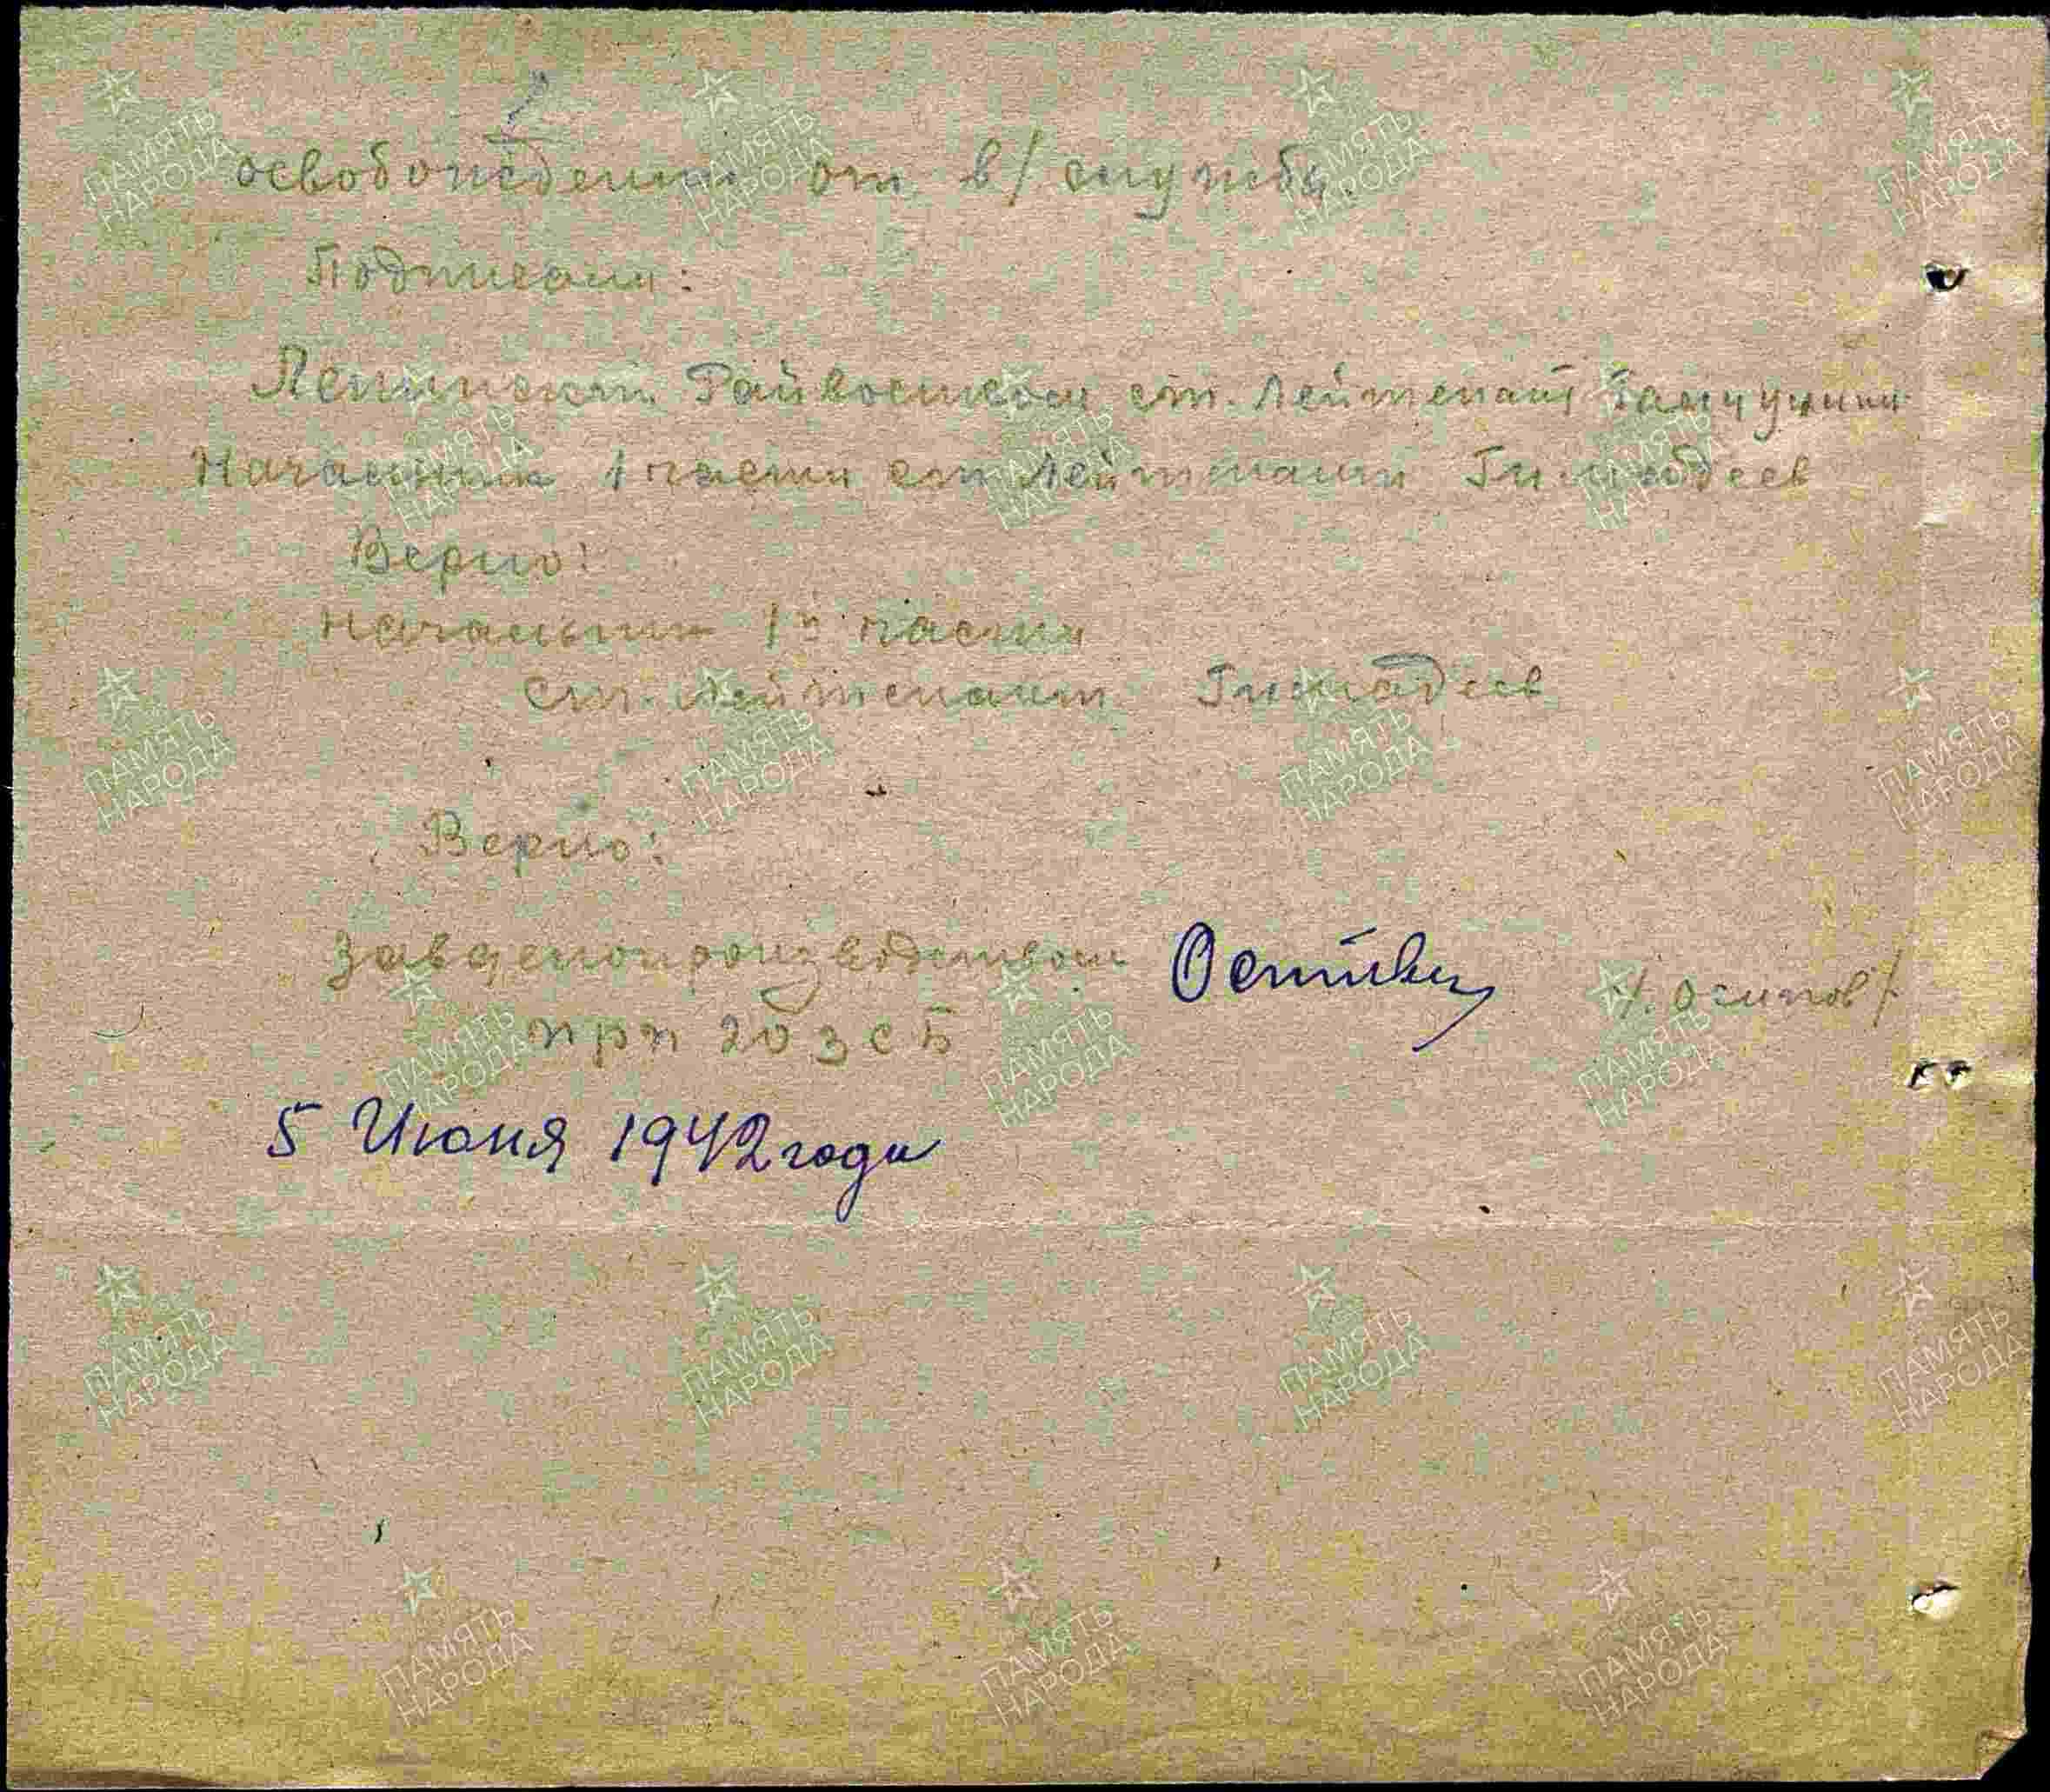 освобождении от в/ службы.
Подписали:
Ленинский Райвоенком ст. Лейтенант
Начальник 1 части ст Лейтенант
Верно:
Начальник 1й части
ст. Лейтенант Гиматдеев
Верно:
Завделопроизводством /. Осипов /.
при 20 з с Б
5 Июня 1942 года
ПАМЯТЬ
НАРОДА